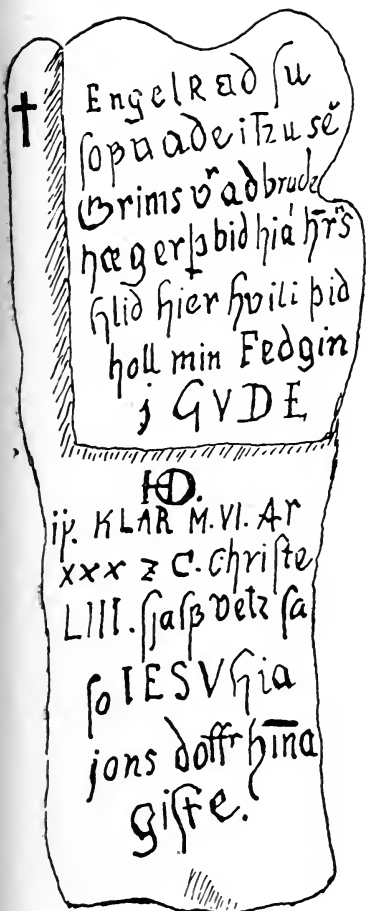 EngelRad ſu
ſopnadeiTzu sĕ
Grims vͬ ad brudz
hægerþ bid hiá hr̄s̃
hlid hier hvili þid
holl min Fedgin
j GVDE
HD.
ij. KLAR M.VI. Ar
xxx z C. Chriſte
LIII. ſjalſz vetz ſa
ſo IESV hia
jons doſſr hīna
giſte.